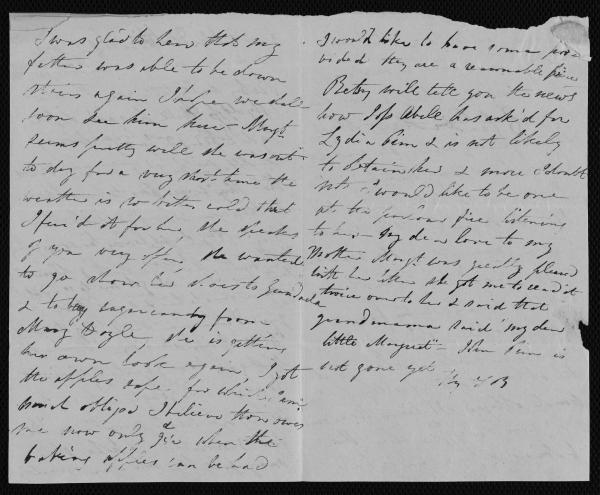 I was glad to hear that my
father was able to be down
stairs again I hope we shall
soon see him here - Margt
seems pretty well she was out
to day for a very short time the
weather is so bitter cold that
I fear'd it for her, she speaks
of you very often she wanted
to go show her shoes to Grandada
& to buy sugarcandy from
Mary Doyle, she is getting
her own look again, I got
the apples safe for which I am
much obliged I believe thou owes
me now only when the
baking apples can be had
I would like to have some pro
vided they are a reasonable price
Betsy will tell you the news
how Joss Abell has ask'd for
Lydia Pim & is not likely
to obtain her & more I doubt
not - I would like to be one
at the parlour fire listening
to her - My dear love to my
Mother Margt was greatly pleased
with her letter she got me to read it
twice over to her & said that
grandmama said "my dear
little Margaret" - John Pim is
not gone yet